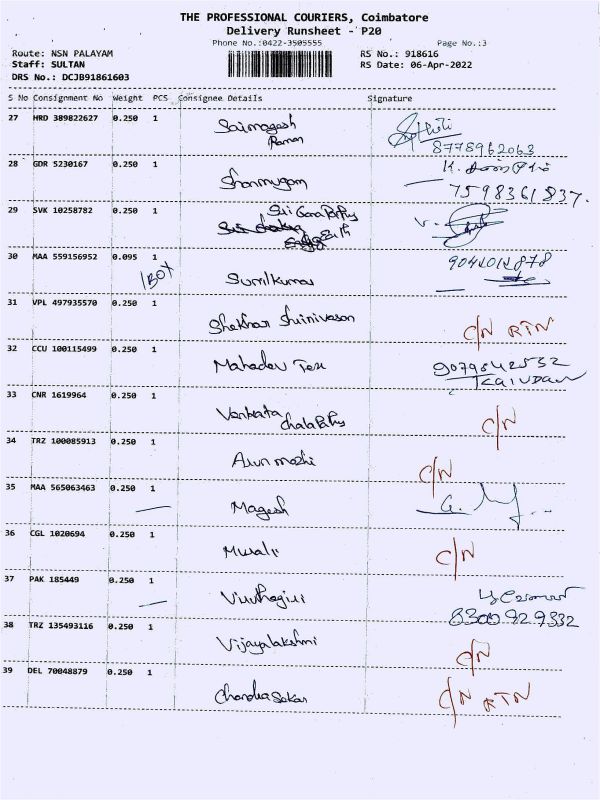 THE PROFESSIONAL COURIERS, Coimbatore
Delivery Runsheet - P20
Phone No.:0422-3505555 Page No.:3
Route: NSN PALAYAM RS No.: 918616
Staff: SULTAN RS Date: 06-Apr-2022
DRS No.: DCJB91861603
S No Consignment No Weight PCS Consignee Details Signature
27 HRD 389822627 0.250 1 Saimagesh
Raman
8778962063
28 GDR 5230167 0.250 1 Shanmugam
7598361837.
29 SVK 10258782 0.250 1
30 MAA 559156952 0.095 1 Sunilkumar
1BOX
31 VPL 497935570 0.250 1 Shekhar Shrinivasan C/N RTN
32 CCU 100115499 0.250 1 Mahadev 9079842532
33 CNR 1619964 0.250 1 Venkata
Chalapathy C/N
34 TRZ 100085913 0.250 1 Arun mozhi C/N
35 MAA 565063463 0.250 1 Magesh
36 CGL 1020694 0.250 1 Murali C/N
37 PAK 185449 0.250 1
38 TRZ 135493116 0.250 1 Vijayalakshmi C/N
39 DEL 70048879 0.250 1 Chandra Sekar C/N RTN